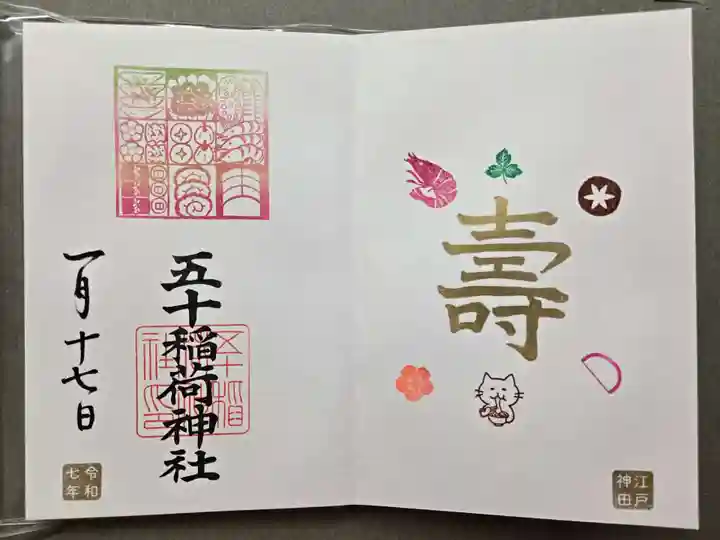 壽
江戸
神田
五十稲荷神社
一月十七日
令和
七年